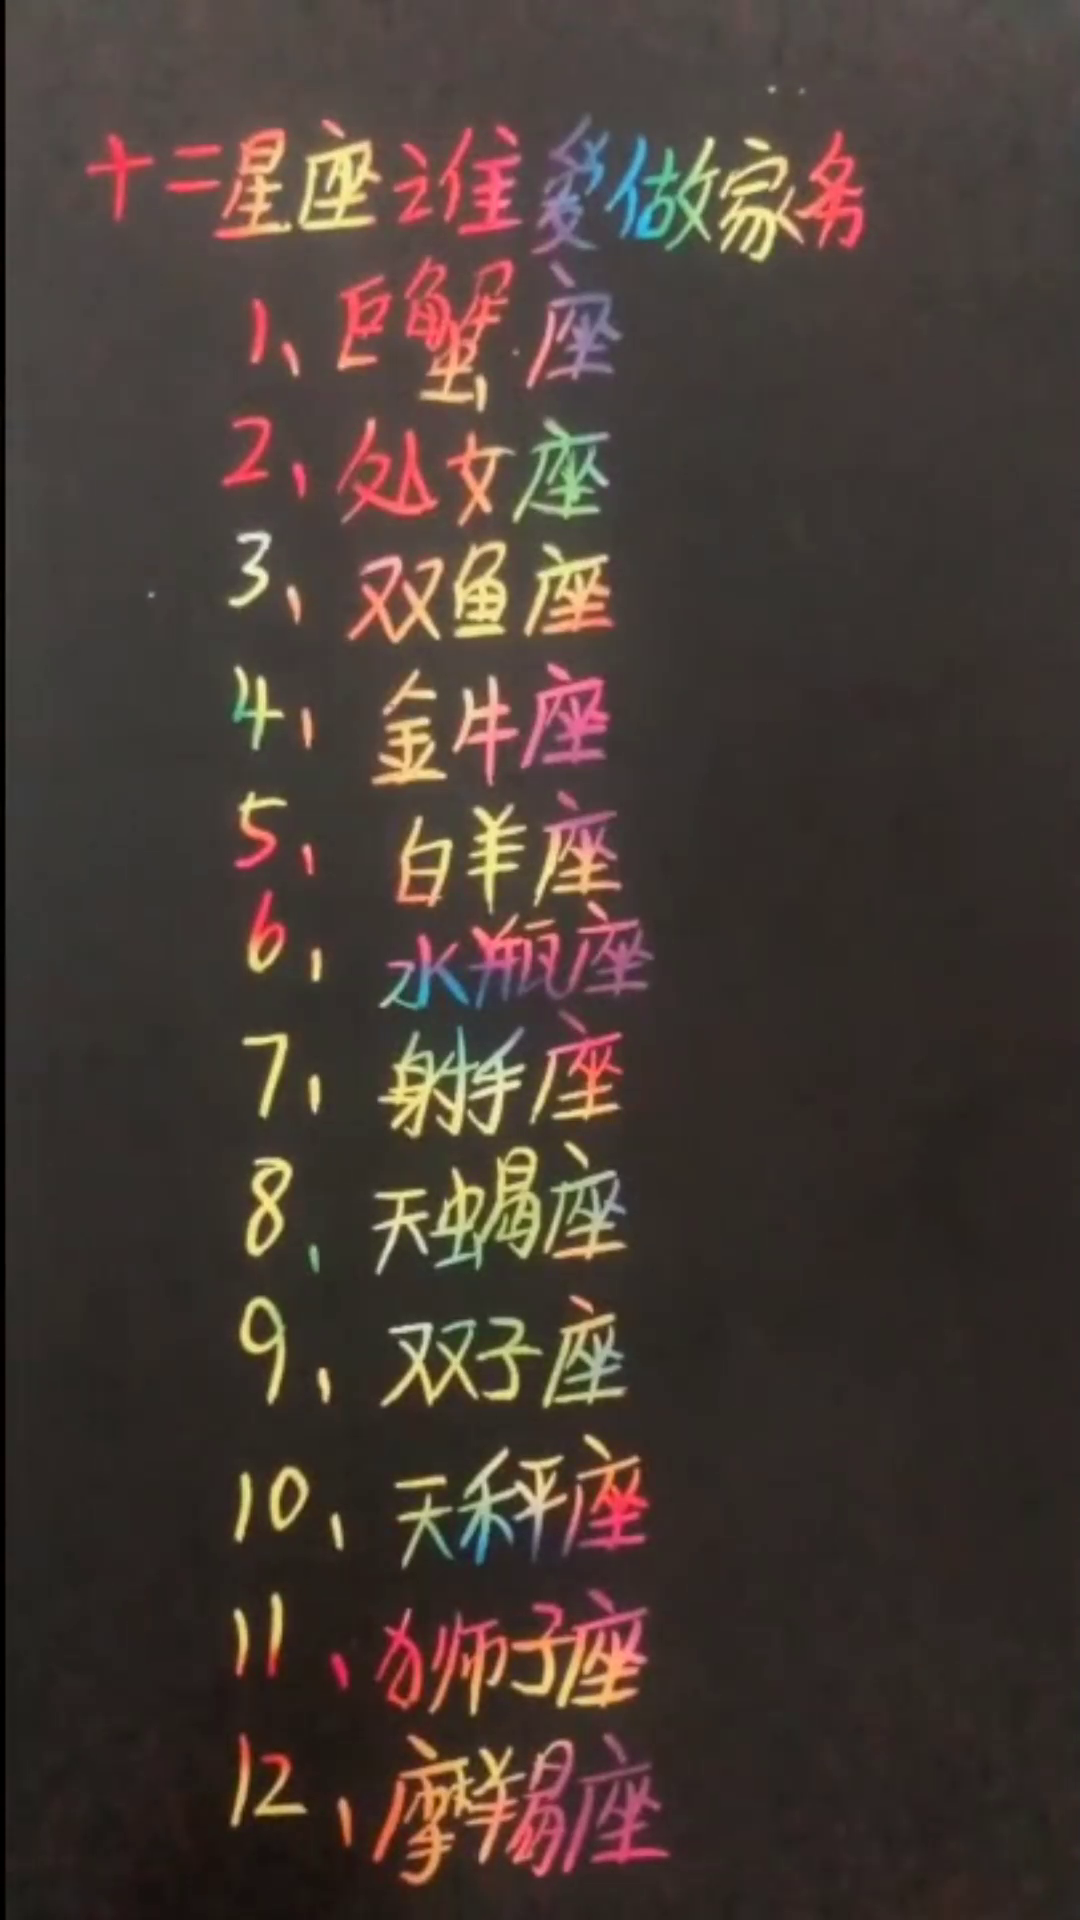 十二星座谁爱做家务
1、巨蟹座
2、处女座
3、双鱼座
4、金牛座
5、白羊座
6、水瓶座
7、射手座
8、天蝎座
9、双子座
10、天秤座
11、狮子座
12、摩羯座